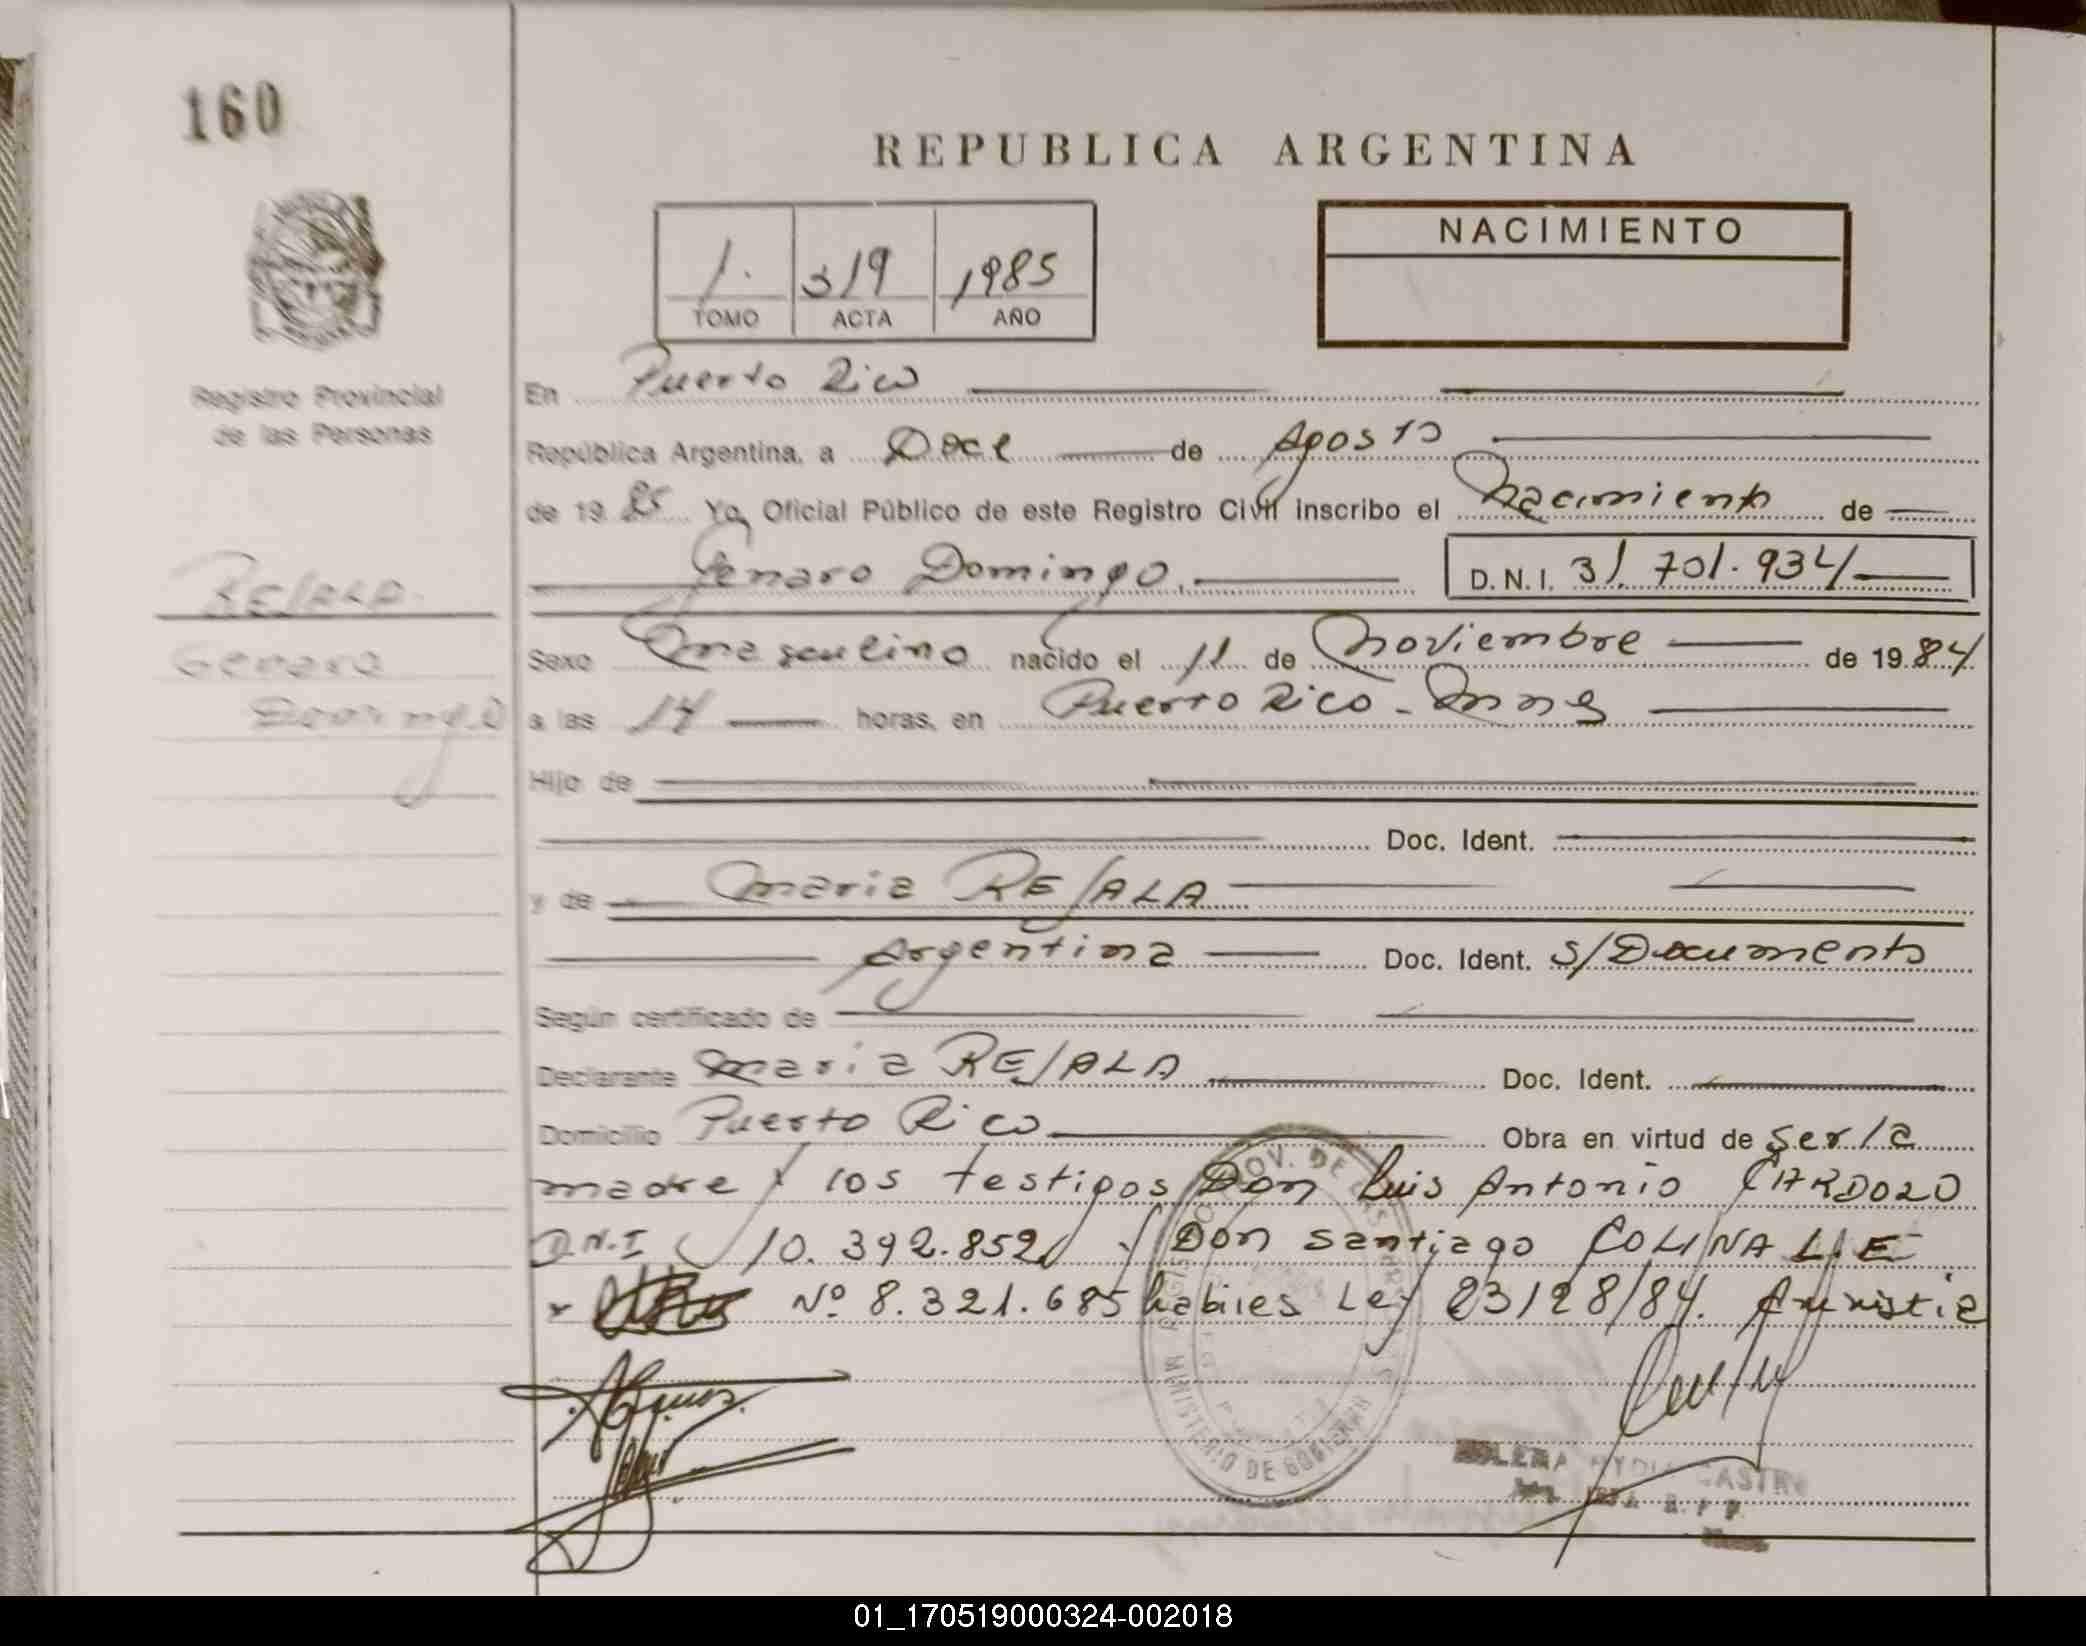 160
REPUBLICA ARGENTINA
NACIMIENTO
1. 319 1985
TOMO ACTA AÑO
Registro Provincial
de las Personas
En Puerto Rico
República Argentina, a Doce de Agosto
de 1985 Yo, Oficial Público de este Registro Civil inscribo el Nacimiento de
Genaro Domingo. D.N.I. 31.701.934
REJALA
Genaro
Domingo
Sexo masculino nacido el 11 de Noviembre de 1984
a las 14 horas, en Puerto Rico - Mnes
Hijo de
Doc. Ident.
y de Maria REJALA
Argentina Doc. Ident. s/Documento
Según certificado de
Declarante Maria REJALA Doc. Ident.
Domicilio Puerto Rico Obra en virtud de ser la
madre y los testigos Don Luis Antonio CARDOZO
D.N.I 10.392.852 y Don Santiago COLINA L.E
Nº 8.321.685 habiles Ley 23128/84. Amnistia
PROV. DE MISIONES
MINISTERIO DE GOBIERNO
CASTRO
01_170519000324-002018